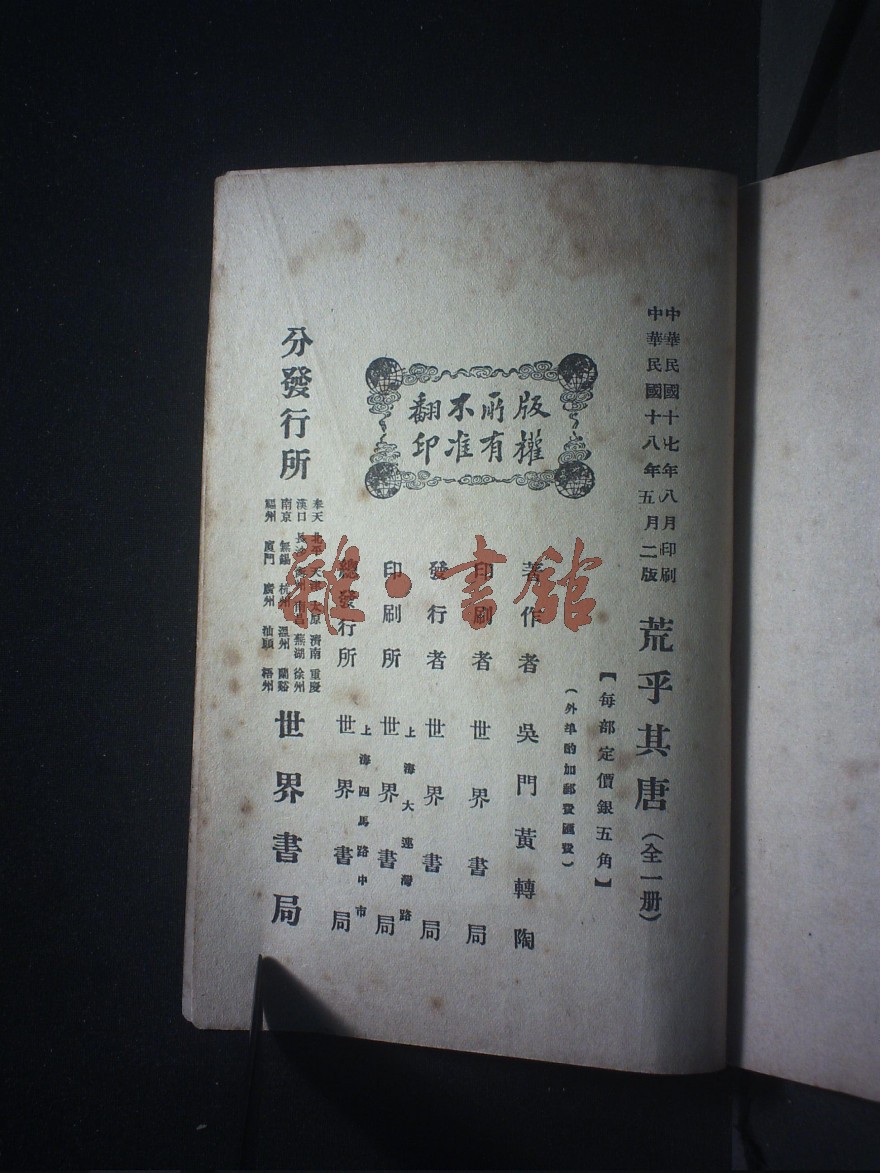 中華民國十七年八月印刷
中華民國十八年五月二版
荒乎其唐（全一册）
【每部定價銀五角】
（外埠酌加郵費匯費）
版權
所有
不准
翻印
著作者 吳門黃轉陶
印刷者 世界書局
發行者 世界書局
印刷所 上海大連灣路 世界書局
總發行所 上海四馬路中市 世界書局
分發行所
奉天 北平 天津 太原 濟南 重慶
漢口 長沙 南昌 蕪湖 徐州
南京 無錫 杭州 溫州 蘭谿
廈門 廣州 汕頭 梧州
世界書局
雜·書館